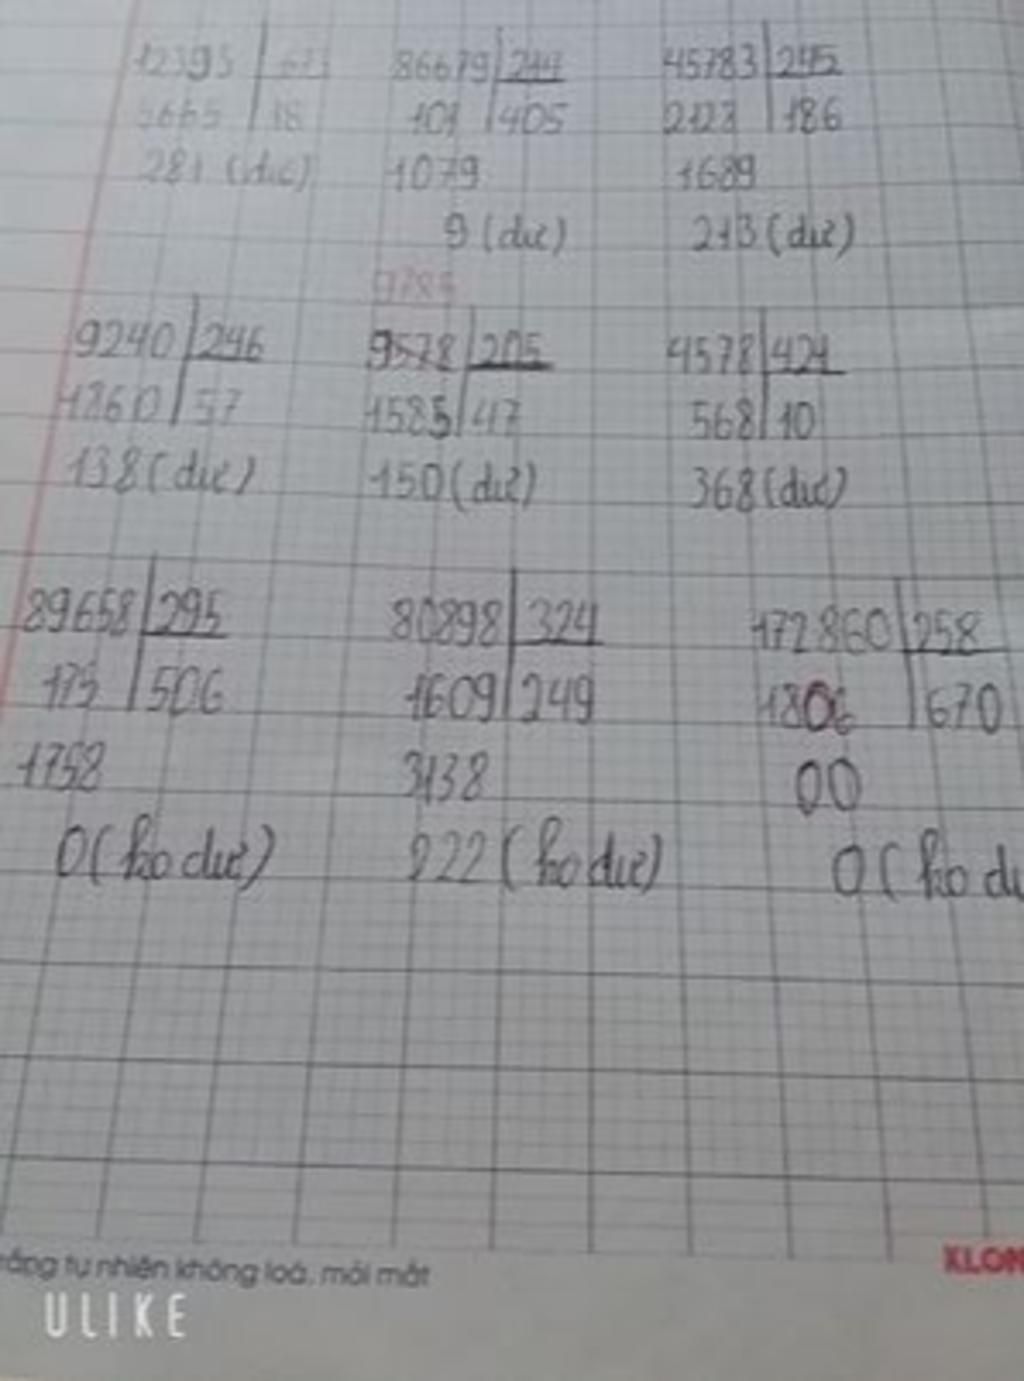 12395 67
5665 18
281 (dư)
86679 214
101 405
1079
9 (dư)
45783 245
2123 186
1689
213 (dư)
9785
9240 246
1860 57
138 (dư)
9578 205
1585 47
150 (dư)
4578 421
568 10
368 (dư)
89658 295
175 506
1758
0 (ko dư)
80898 324
1609 249
3138
222 (ko dư)
172860 258
1806 670
00
0 (ko dư
tự nhiên không loá, mỏi mắt
KLON
ULIKE